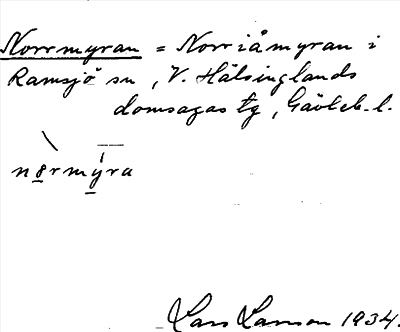 Norrmyran = Norriåmyran i
Ramsjö sn, V. Hälsinglands
domsagas tg, Gävleb. l.
nørmyra
Lars Larsson 1934.